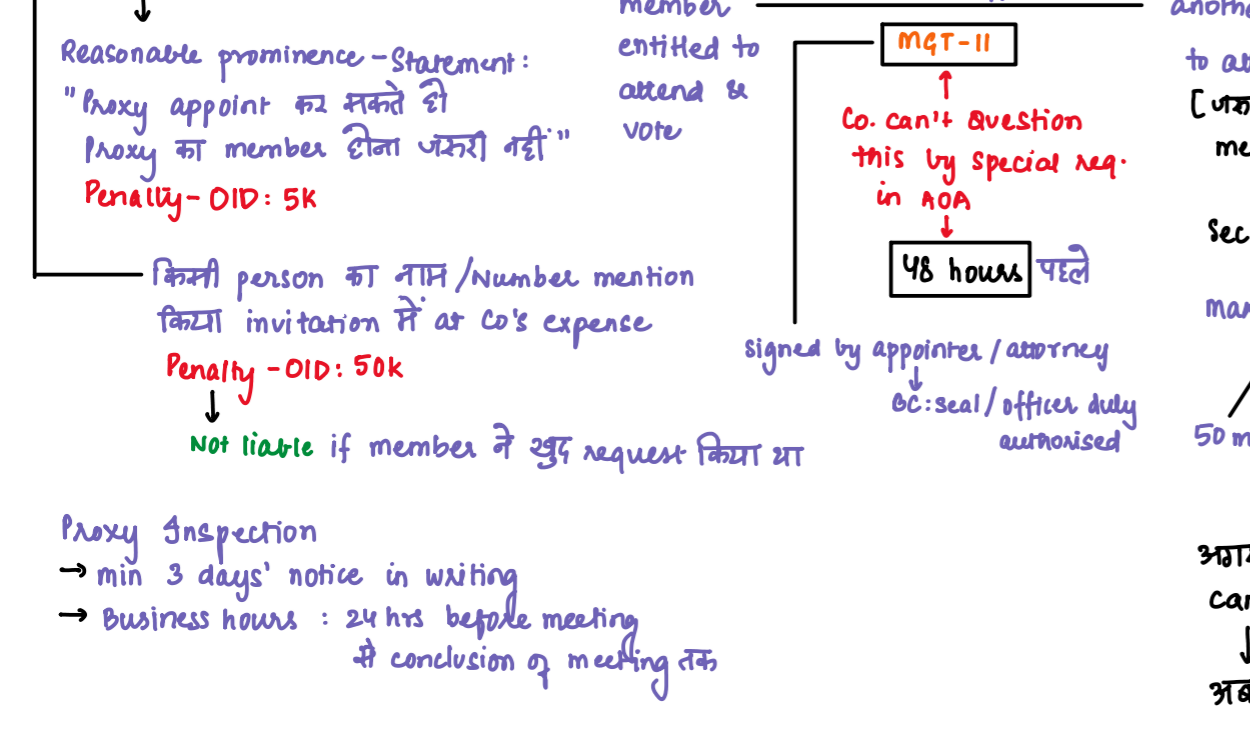 Reasonable prominence - Statement:
"Proxy appoint कर सकते हो
Proxy का member होना जरूरी नहीं"
Penalty - OID: 5K
किसी person का नाम / Number mention
किया invitation में at Co's expense
Penalty - OID: 50k
Not liable if member ने खुद request किया था
Proxy Inspection
→ min 3 days' notice in writing
→ Business hours : 24 hrs before meeting
से conclusion of meeting तक
member
entitled to
attend &
vote
MGT-11
Co. can't Question
this by special req.
in AOA
48 hours पहले
signed by appointer / attorney
BC: seal / officer duly
authorised
to
[
me
Sec
50 m